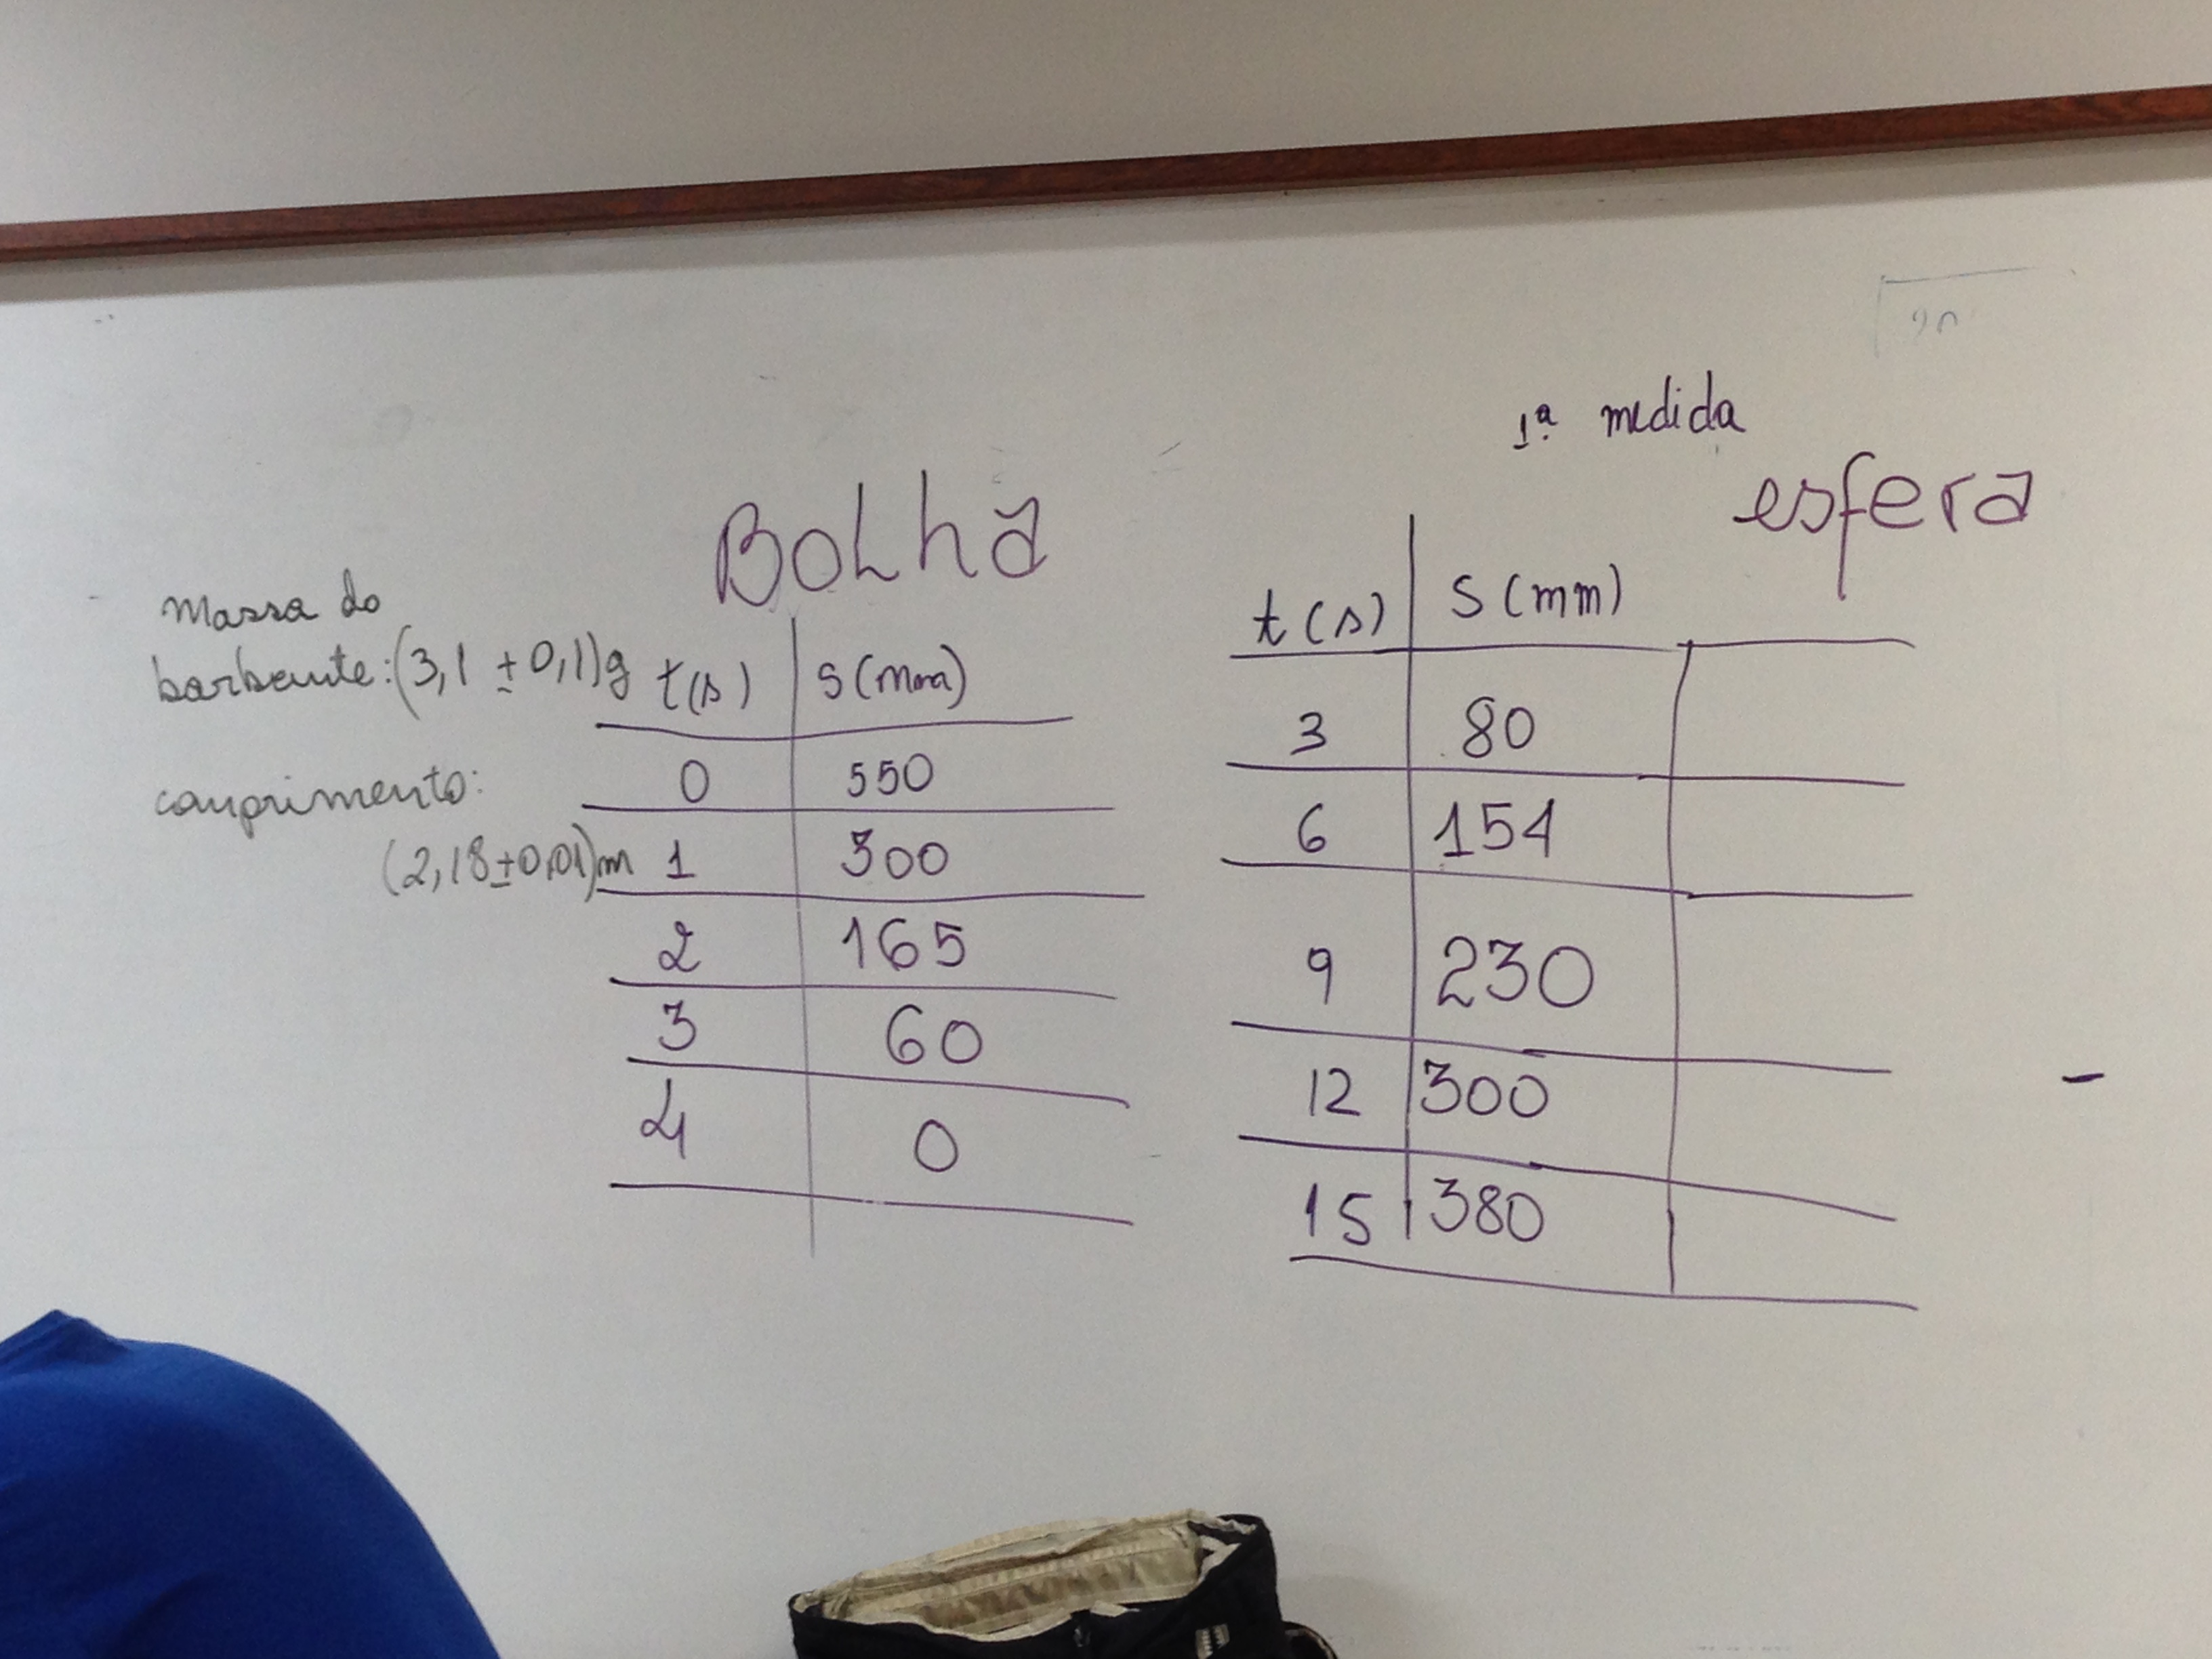 Massa do
barbante: (3,1 ± 0,1)g
comprimento:
(2,18 ± 0,01)m
BoLha
t(s) s(mm)
0 550
1 300
2 165
3 60
4 0
1ª medida
esfera
t(s) S(mm)
3 80
6 154
9 230
12 300
15 380